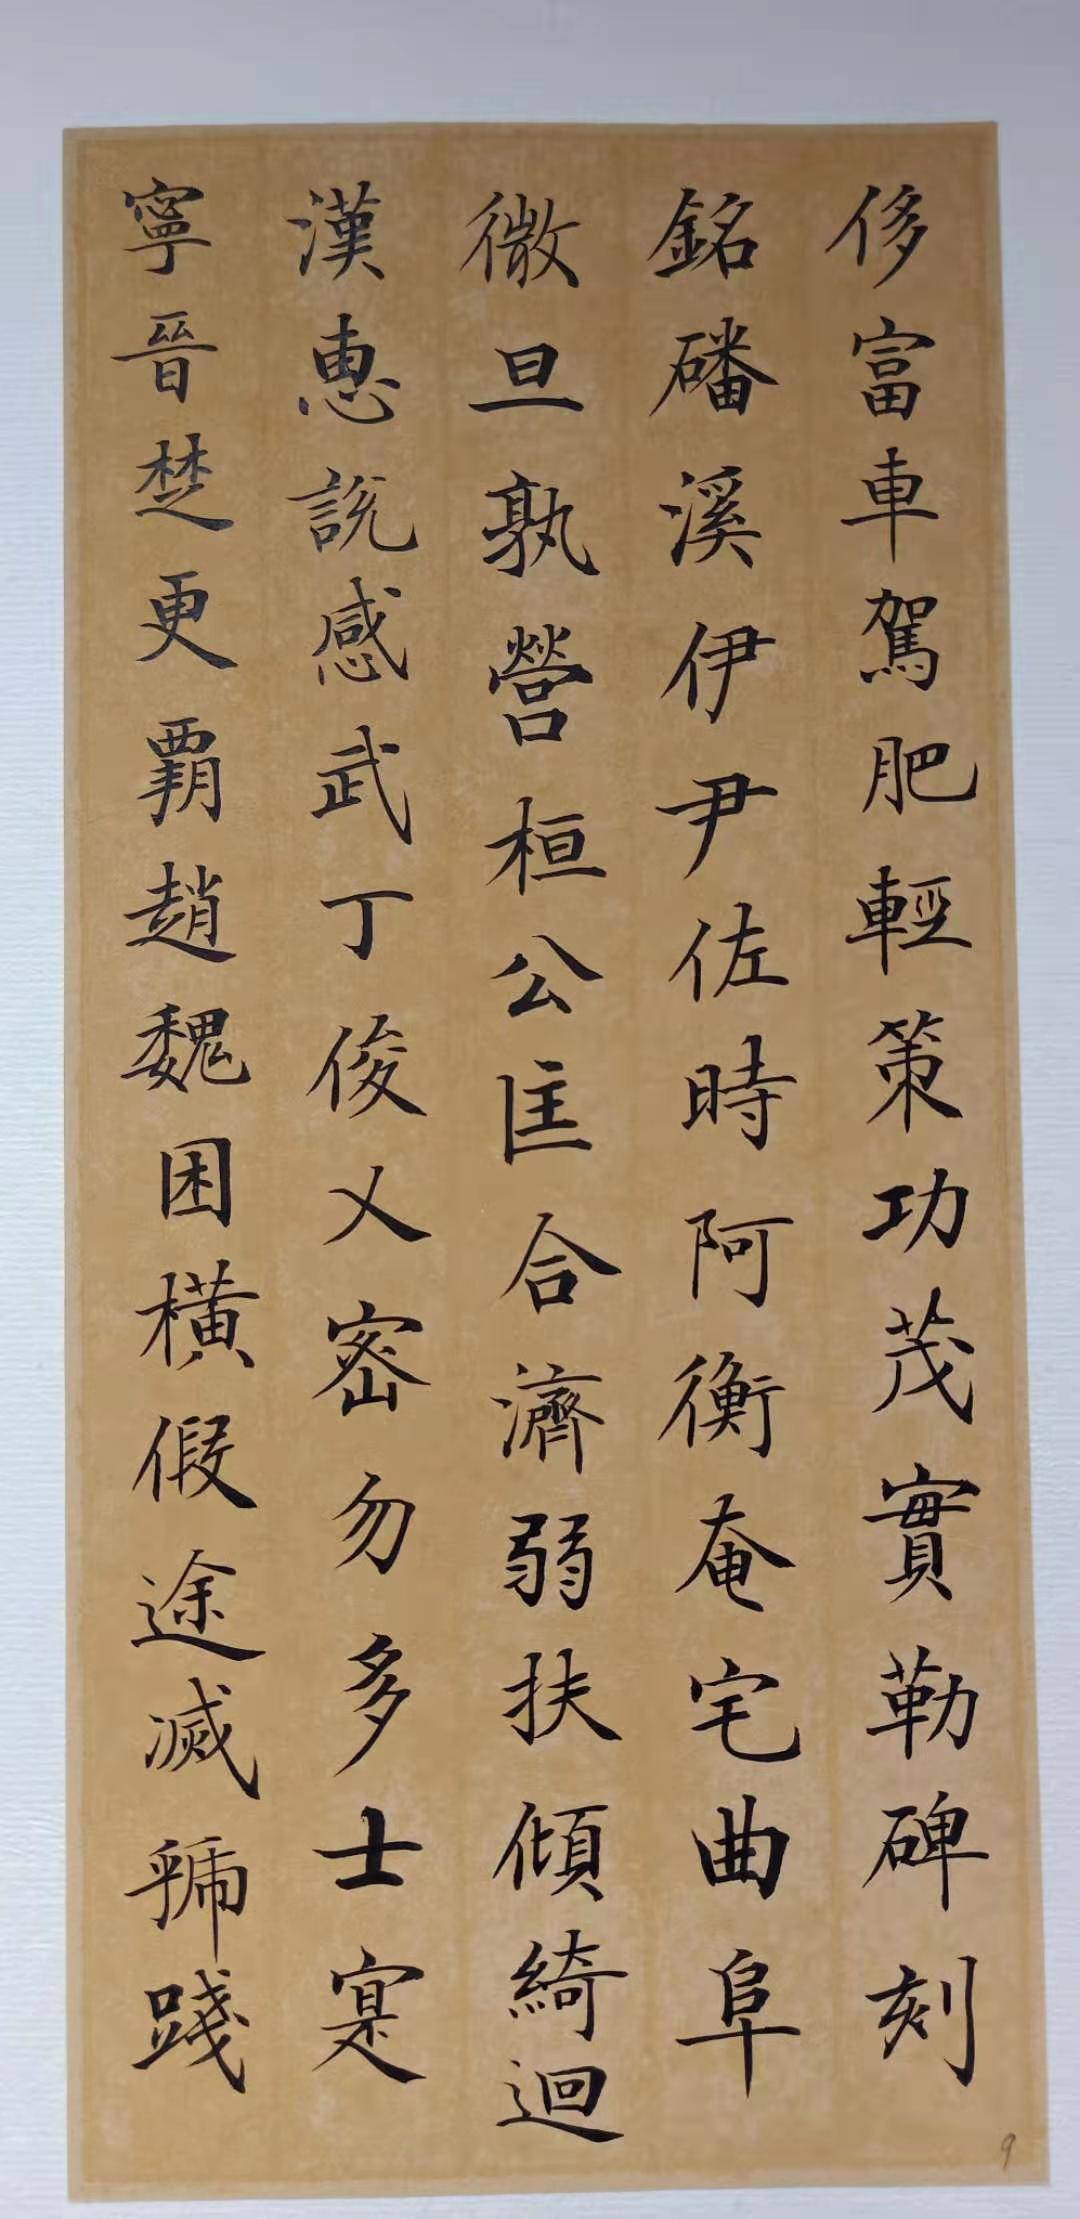 侈富車駕肥輕策功茂實勒碑刻
銘磻溪伊尹佐時阿衡奄宅曲阜
微旦孰營桓公匡合濟弱扶傾綺迴
漢惠說感武丁俊乂密勿多士寔
寧晉楚更覇趙魏困橫假途滅虢踐
9